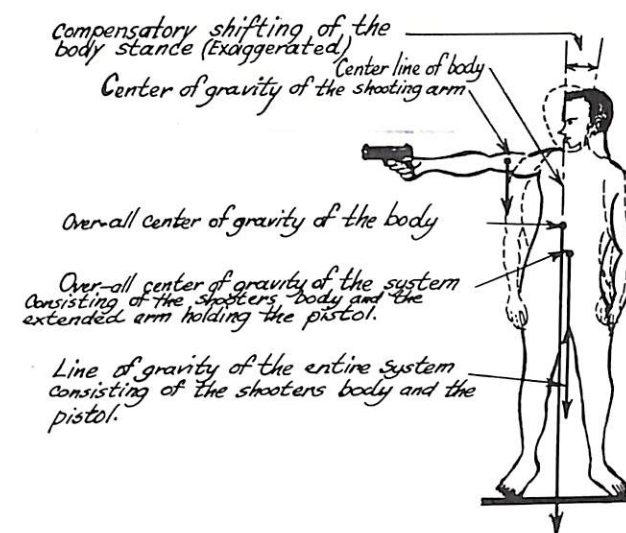 Compensatory shifting of the
body stance (Exaggerated)
Center line of body
Center of gravity of the shooting arm
Over-all center of gravity of the body
Over-all center of gravity of the system
consisting of the shooters body and the
extended arm holding the pistol.
Line of gravity of the entire system
consisting of the shooters body and the
pistol.